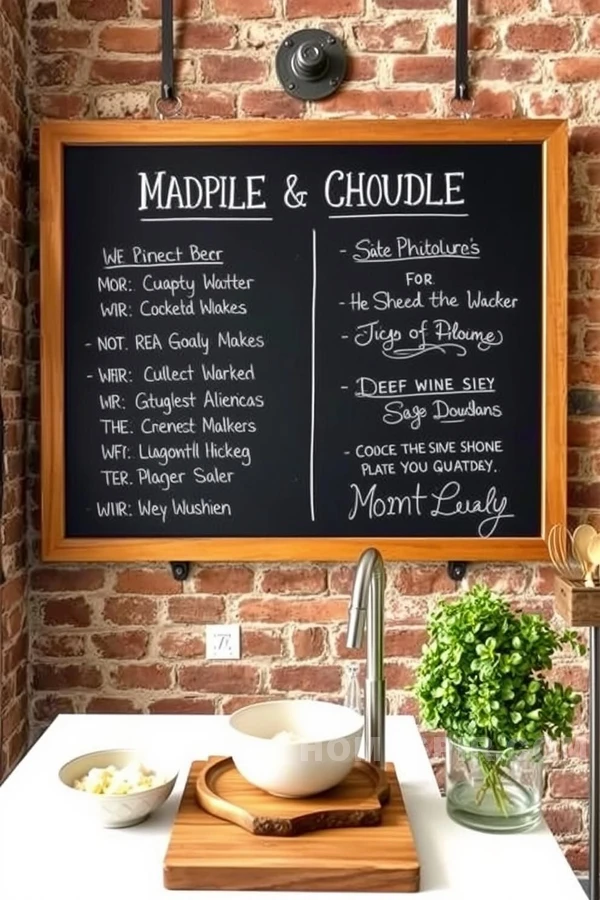 MADPILE & CHOUDLE
WE Pinect Beer
MOR: Cuapty Watter
WIR: Cocketd Wlakes
- NOT. REA Goaly Makes
- WFIR: Cullect Warked
WR: Gtuglest Aliencas
THE. Cnenest Malkers
WFI: Liagontll Hickeg
TER. Plager Saler
WIIR: Wey Wushien
- Sate Phitolure's
FOR.
- He Sheed the Wacker
- Jigs of Piloime
- DEEF WINE SIEY
Sage Dowdans
- COOCE THE SIVE SHONE
PLATE YOU QUATDEY.
Momt Lealy